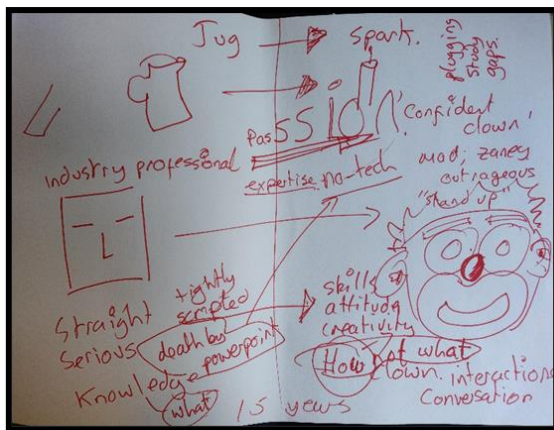 Jug
spark.
plugging
study
gaps.
passion
'Confident
clown'
industry professional
expertise no-tech
mad; zaney
outrageous
"stand up"
tightly
scripted
Straight
Serious
death by
powerpoint
Knowledge
what
15 years
skills
attitude
creativity
How not what
Clown. interactions
Conversation